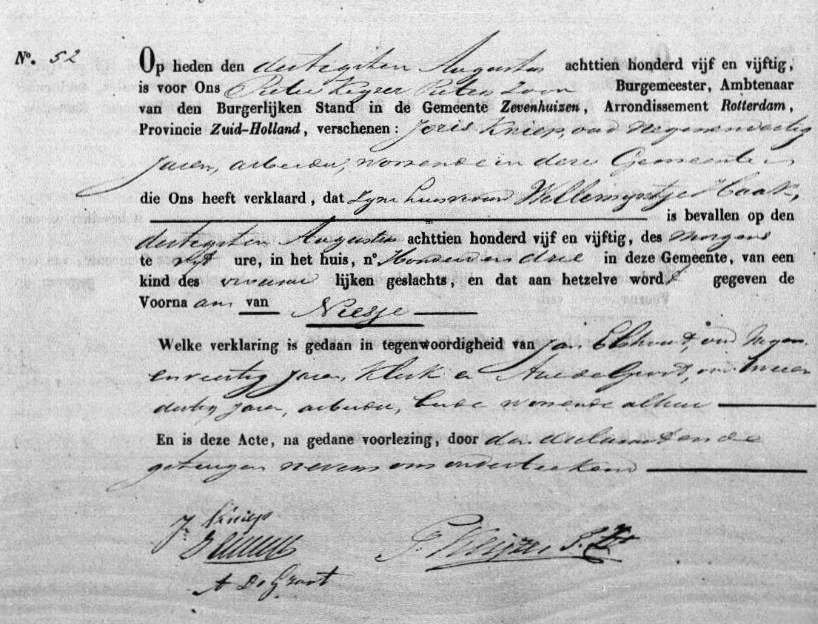 Nº. 52
Op heden den dertigsten Augustus achttien honderd vijf en vijftig,
is voor Ons Pieter Keyzer Pieters Zoon Burgemeester, Ambtenaar
van den Burgerlijken Stand in de Gemeente Zevenhuizen, Arrondissement Rotterdam,
Provincie Zuid-Holland, verschenen: Joris Kniep, oud Negenendertig
Jaren, arbeider, wonende in deze Gemeente
die Ons heeft verklaard, dat zyne huisvrouw Willemyntje Haak,
is bevallen op den
dertigsten Augustus achttien honderd vijf en vijftig, des morgens
te vyf ure, in het huis, nº. Honderd en drie in deze Gemeente, van een
kind des vrouwe lijken geslachts, en dat aan hetzelve wordt gegeven de
Voorna am van Niesje
Welke verklaring is gedaan in tegenwoordigheid van Jan Elshout, oud Negen
Jaren, Klerk en Arie de Groot, oud
dertig Jaren, arbeider, beide wonende alhier
En is deze Acte, na gedane voorlezing, door den declarant en de
getuigen nevens ons onderteekend
J. Kniep
P. Keijzer P.Zn
A De Groot